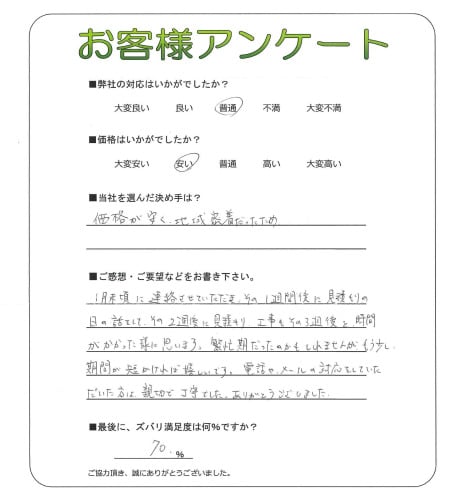 お客様アンケート
■弊社の対応はいかがでしたか？
大変良い 良い 普通 不満 大変不満
■価格はいかがでしたか？
大変安い 安い 普通 高い 大変高い
■当社を選んだ決め手は？
価格が安く、地域密着だったため
■ご感想・ご要望などをお書き下さい。
1月末頃に連絡させていただき、その1週間後に見積もりの
日の話をして、その2週後に見積もり 工事もその3週後と時間
がかかった様に思います。繁忙期だったのかもしれませんがもう少し
期間が短かければ嬉しいです。電話や、メールの対応をしていた
だいた方は、親切で丁寧でした。ありがとうございました。
■最後に、ズバリ満足度は何％ですか？
70.％
ご協力頂き、誠にありがとうございました。